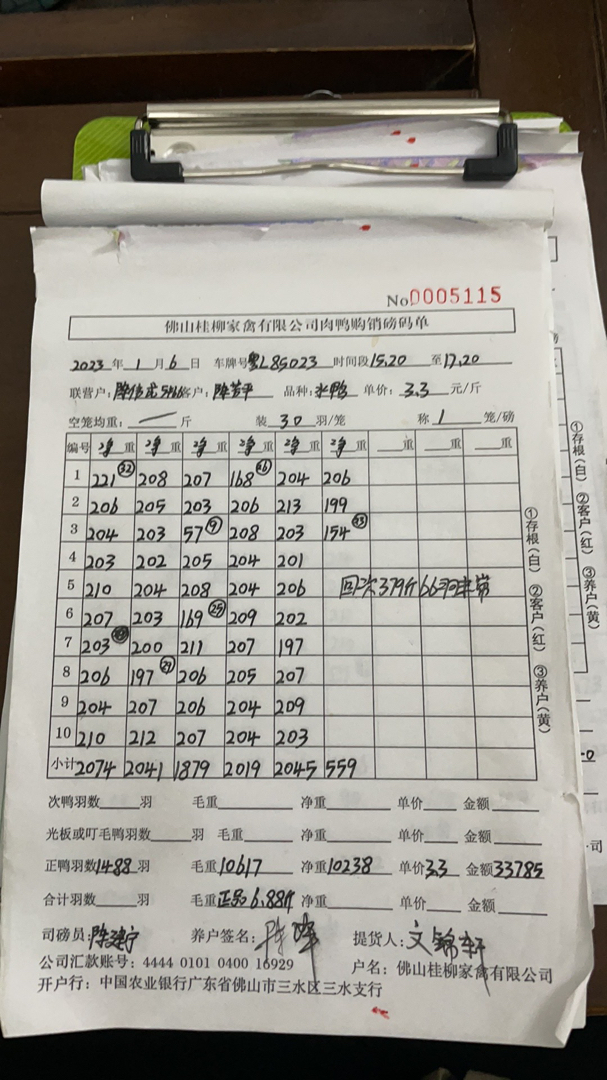 No 0005115
佛山桂柳家禽有限公司肉鸭购销磅码单
2023 年 1 月 6 日 车牌号 粤L85023 时间段 15.20 至 17.20
联营户: 客户: 陈芳平 品种: 水鸭 单价: 3.3 元/斤
空笼均重: 一 斤 装 30 羽/笼 称 1 笼/磅
编号 净重 净重 净重 净重 净重 净重 重 重 重
1 221 (32) 208 207 168 (26) 204 206
2 206 205 203 206 213 199
3 204 203 57 (9) 208 203 154 (23)
4 203 202 205 204 201
5 210 204 208 204 206 回次379斤66羽
6 207 203 169 (25) 209 202
7 203 200 211 207 197
8 206 197 206 205 207
9 204 207 206 204 209
10 210 212 207 204 203
小计 2074 2041 1879 2019 2045 559
①存根(白) ②客户(红) ③养户(黄)
次鸭羽数 羽 毛重 净重 单价 金额
光板或叮毛鸭羽数 羽 毛重 净重 单价 金额
正鸭羽数 1488 羽 毛重 10617 净重 10238 单价 3.3 金额 33785
合计羽数 羽 毛重 正品6.88斤 净重 单价 金额
司磅员: 陈建宁 养户签名: 提货人: 文锦轩
公司汇款账号: 4444 0101 0400 16929 户名: 佛山桂柳家禽有限公司
开户行: 中国农业银行广东省佛山市三水区三水支行
①存根(白) ②客户(红) ③养户(黄)